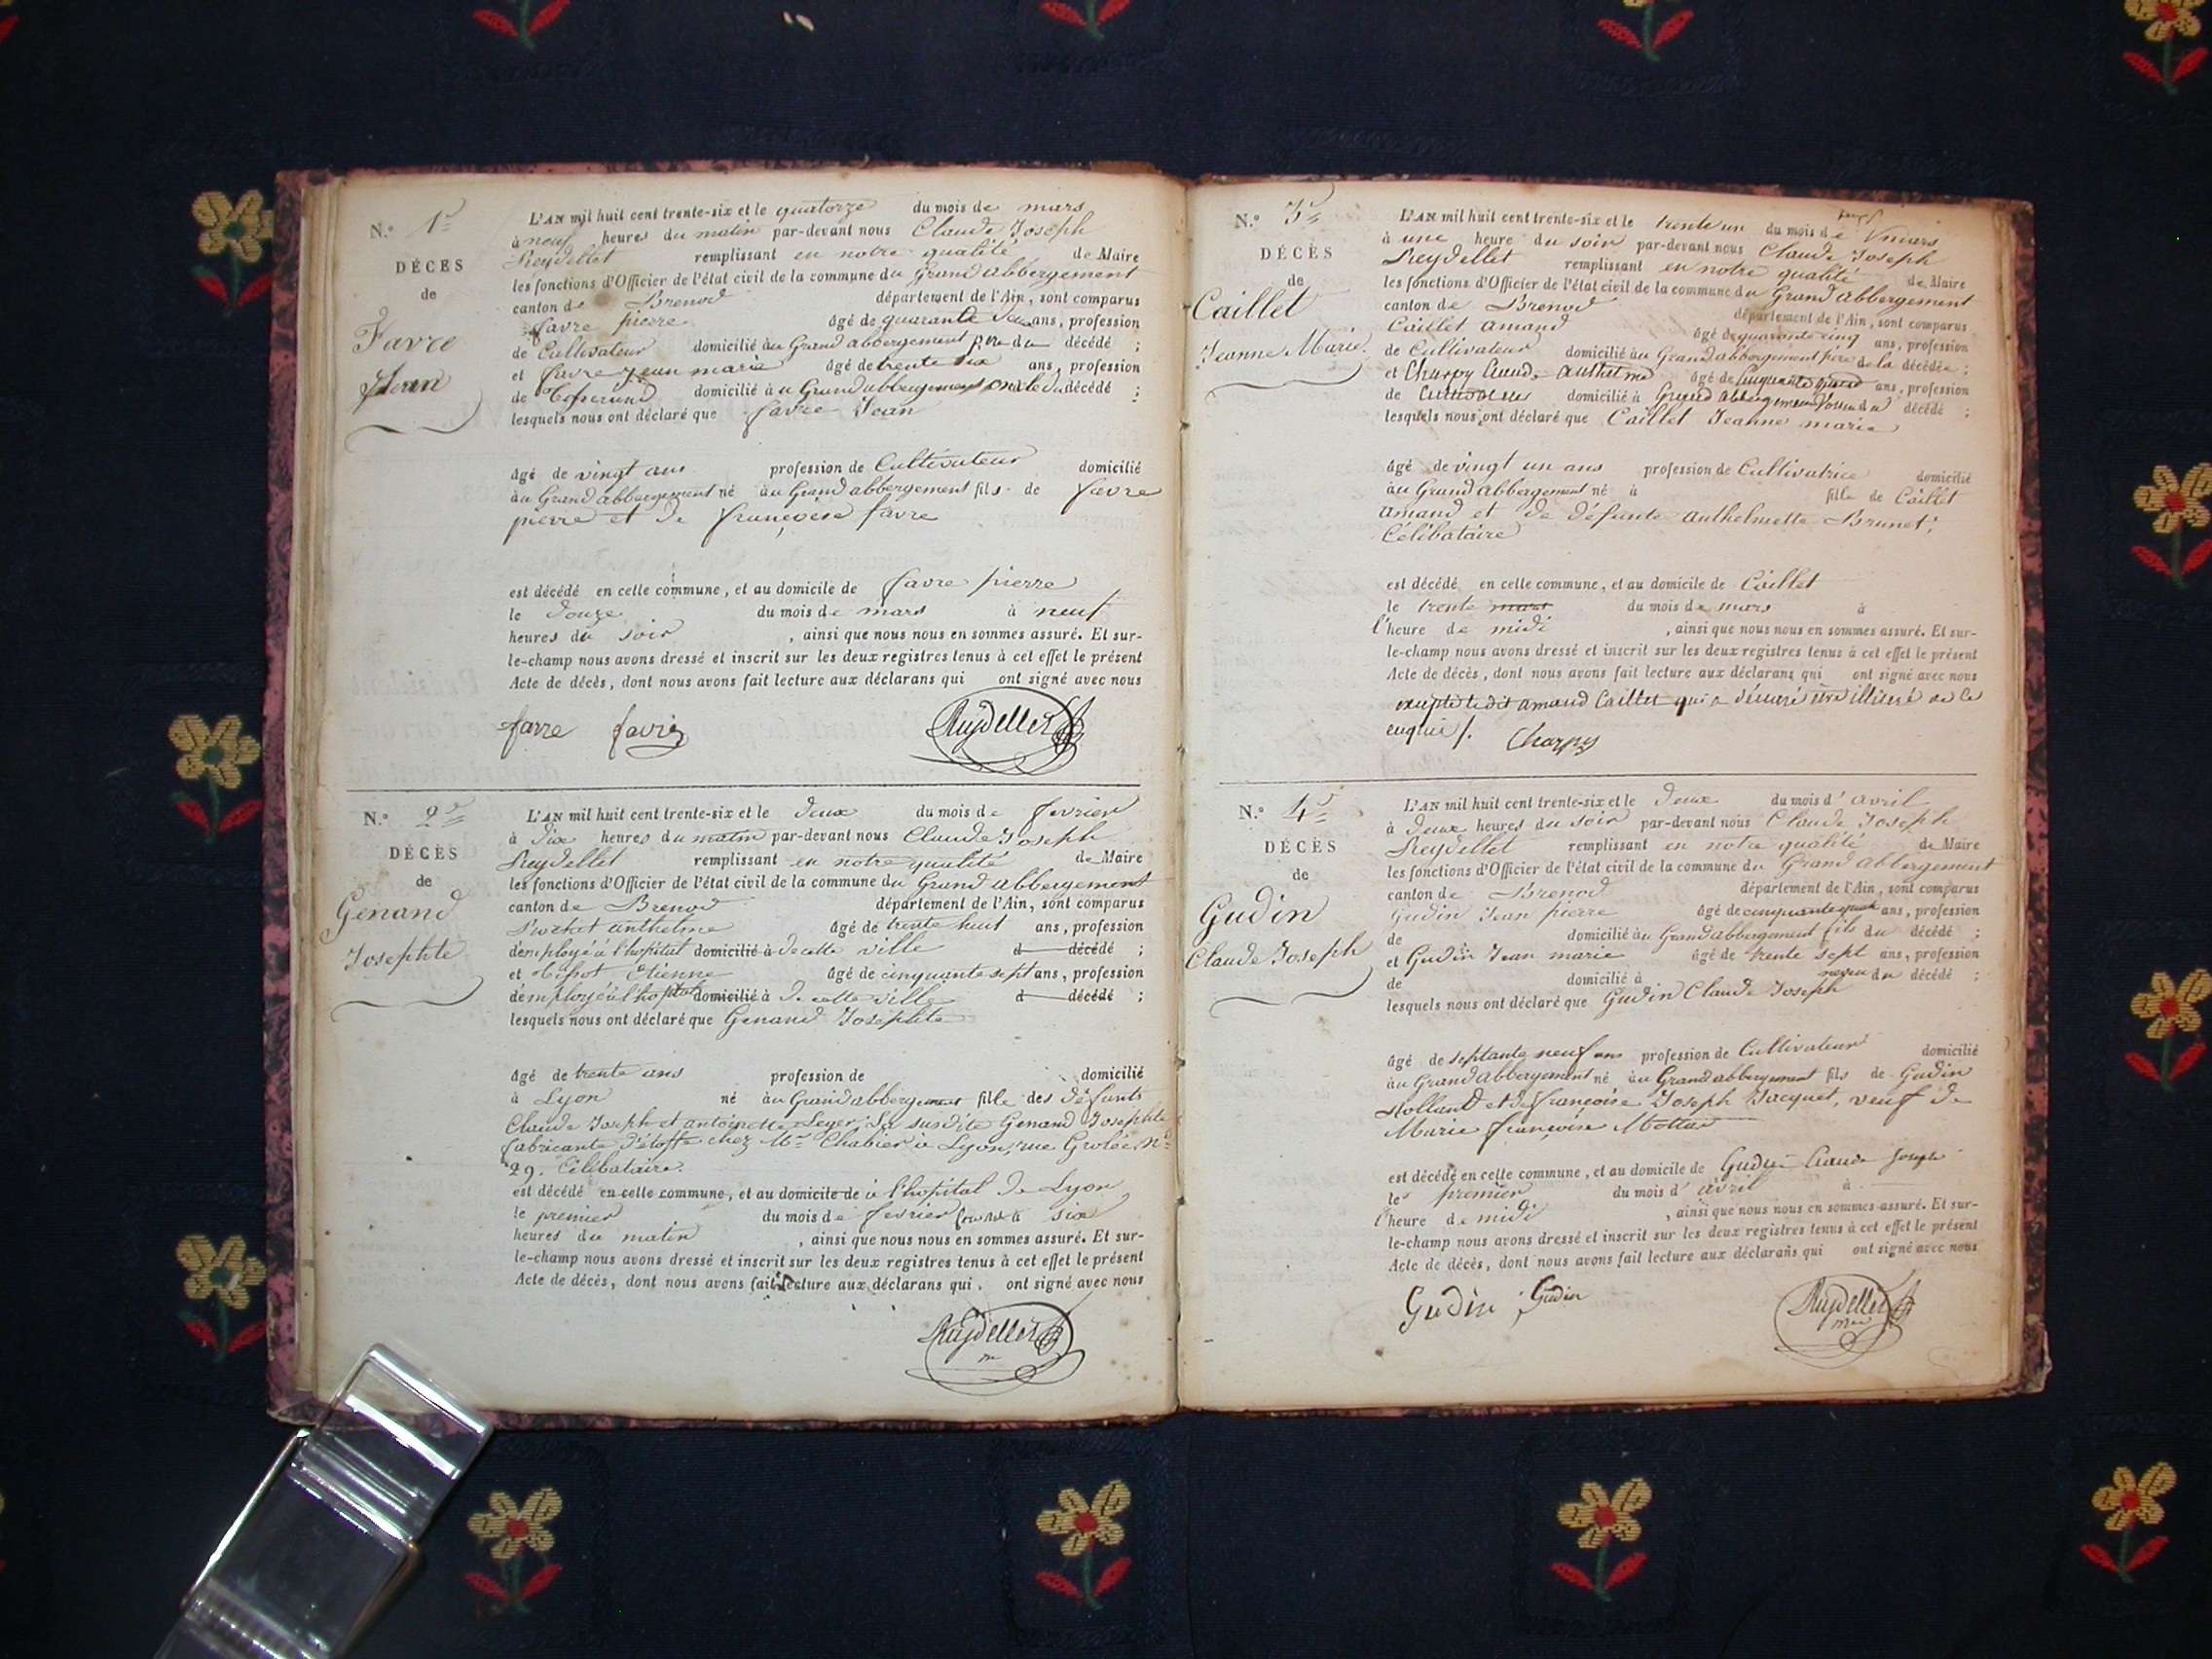 N.º 1er
DÉCES
de
Favre
Jean
L'AN mil huit cent trente-six et le quatorze du mois de mars
à neuf heures du matin par-devant nous Claude Joseph
Reydellet remplissant en notre qualité de Maire
les fonctions d'Officier de l'état civil de la commune du Grand abbergement
canton de Brenod département de l'Ain, sont comparus
favre pierre âgé de quarante ans, profession
de Cultivateur domicilié au Grand abbergement père du décédé ;
et favre jean marie âgé de trente six ans, profession
de domicilié au Grand abbergement oncle du décédé ;
lesquels nous ont déclaré que favre Jean
âgé de vingt ans profession de Cultivateur domicilié
au Grand abbergement né au Grand abbergement fils de favre
pierre et de françoise favre
est décédé en celle commune, et au domicile de favre pierre
le douze du mois de mars à neuf
heures du soir , ainsi que nous nous en sommes assuré. Et sur-
le-champ nous avons dressé et inscrit sur les deux registres tenus à cet effet le présent
Acte de décès, dont nous avons fait lecture aux déclarans qui ont signé avec nous
favre favre Reydellet
N.º 2e
DÉCÈS
de
Genand
Josephte
L'AN mil huit cent trente-six et le deux du mois de fevrier
à dix heures du matin par-devant nous Claude Joseph
Reydellet remplissant en notre qualité de Maire
les fonctions d'Officier de l'état civil de la commune du Grand abbergement
canton de Brenod département de l'Ain, sont comparus
anthelme âgé de trente huit ans, profession
d'employé à l'hopital domicilié à de cette ville d décédé ;
et Etienne âgé de cinquante sept ans, profession
d'employé à l'hopital domicilié à de cette ville d décédé ;
lesquels nous ont déclaré que Genand Josephte
âgé de trente ans profession de domicilié
à Lyon né au Grand abbergement fille des défunts
Claude Joseph et antoinette Leger; la susdite Genand Josephte
fabricante d'étoffe chez Mr Chabier à Lyon, rue Grolée, No
29. Célibataire.
est décédé en celle commune, et au domicile de à l'hopital de Lyon
le premier du mois de fevrier à six
heures du matin , ainsi que nous nous en sommes assuré. Et sur-
le-champ nous avons dressé et inscrit sur les deux registres tenus à cet effet le présent
Acte de décès, dont nous avons fait lecture aux déclarans qui ont signé avec nous
Reydellet
N.º 3e
DÉCÈS
de
Caillet
Jeanne Marie
L'AN mil huit cent trente-six et le trente un du mois de mars
à une heure du soir par-devant nous Claude Joseph
Reydellet remplissant en notre qualité de Maire
les fonctions d'Officier de l'état civil de la commune du Grand abbergement
canton de Brenod département de l'Ain, sont comparus
Caillet amand âgé de quarante cinq ans, profession
de Cultivateur domicilié au Grand abbergement père de la décédée ;
et Charpy Claude anthelme âgé de cinquante ans, profession
de domicilié à Grand abbergement voisin du décédé ;
lesquels nous ont déclaré que Caillet Jeanne marie
âgé de vingt un ans profession de Cultivatrice domicilié
au Grand abbergement né à fille de Caillet
amand et de défunte anthelmette Brunet,
Célibataire
est décédé en celle commune, et au domicile de Caillet
le trente mars du mois de mars à
l'heure de midi , ainsi que nous nous en sommes assuré. Et sur-
le-champ nous avons dressé et inscrit sur les deux registres tenus à cet effet le présent
Acte de décès, dont nous avons fait lecture aux déclarans qui ont signé avec nous
excepté le dit amand Caillet qui a déclaré être illitéré de ce
enquis. Charpy
N.º 4e
DÉCÈS
de
Gudin
Claude Joseph
L'AN mil huit cent trente-six et le deux du mois d'avril
à deux heures du soir par-devant nous Claude Joseph
Reydellet remplissant en notre qualité de Maire
les fonctions d'Officier de l'état civil de la commune du Grand abbergement
canton de Brenod département de l'Ain, sont comparus
Gudin Jean pierre âgé de cinquante ans, profession
de domicilié au Grand abbergement fils du décédé ;
et Gudin Jean marie âgé de trente sept ans, profession
de domicilié à neveu du décédé ;
lesquels nous ont déclaré que Gudin Claude Joseph
âgé de septante neuf ans profession de Cultivateur domicilié
au Grand abbergement né au Grand abbergement fils de Gudin
Rolland et de françoise Joseph Jacquet, veuf de
Marie françoise Mottar
est décédé en celle commune, et au domicile de Gudin Claude Joseph
le premier du mois d'avril à
l'heure de midi , ainsi que nous nous en sommes assuré. Et sur-
le-champ nous avons dressé et inscrit sur les deux registres tenus à cet effet le présent
Acte de décès, dont nous avons fait lecture aux déclarans qui ont signé avec nous
Gudin Gudin Reydellet